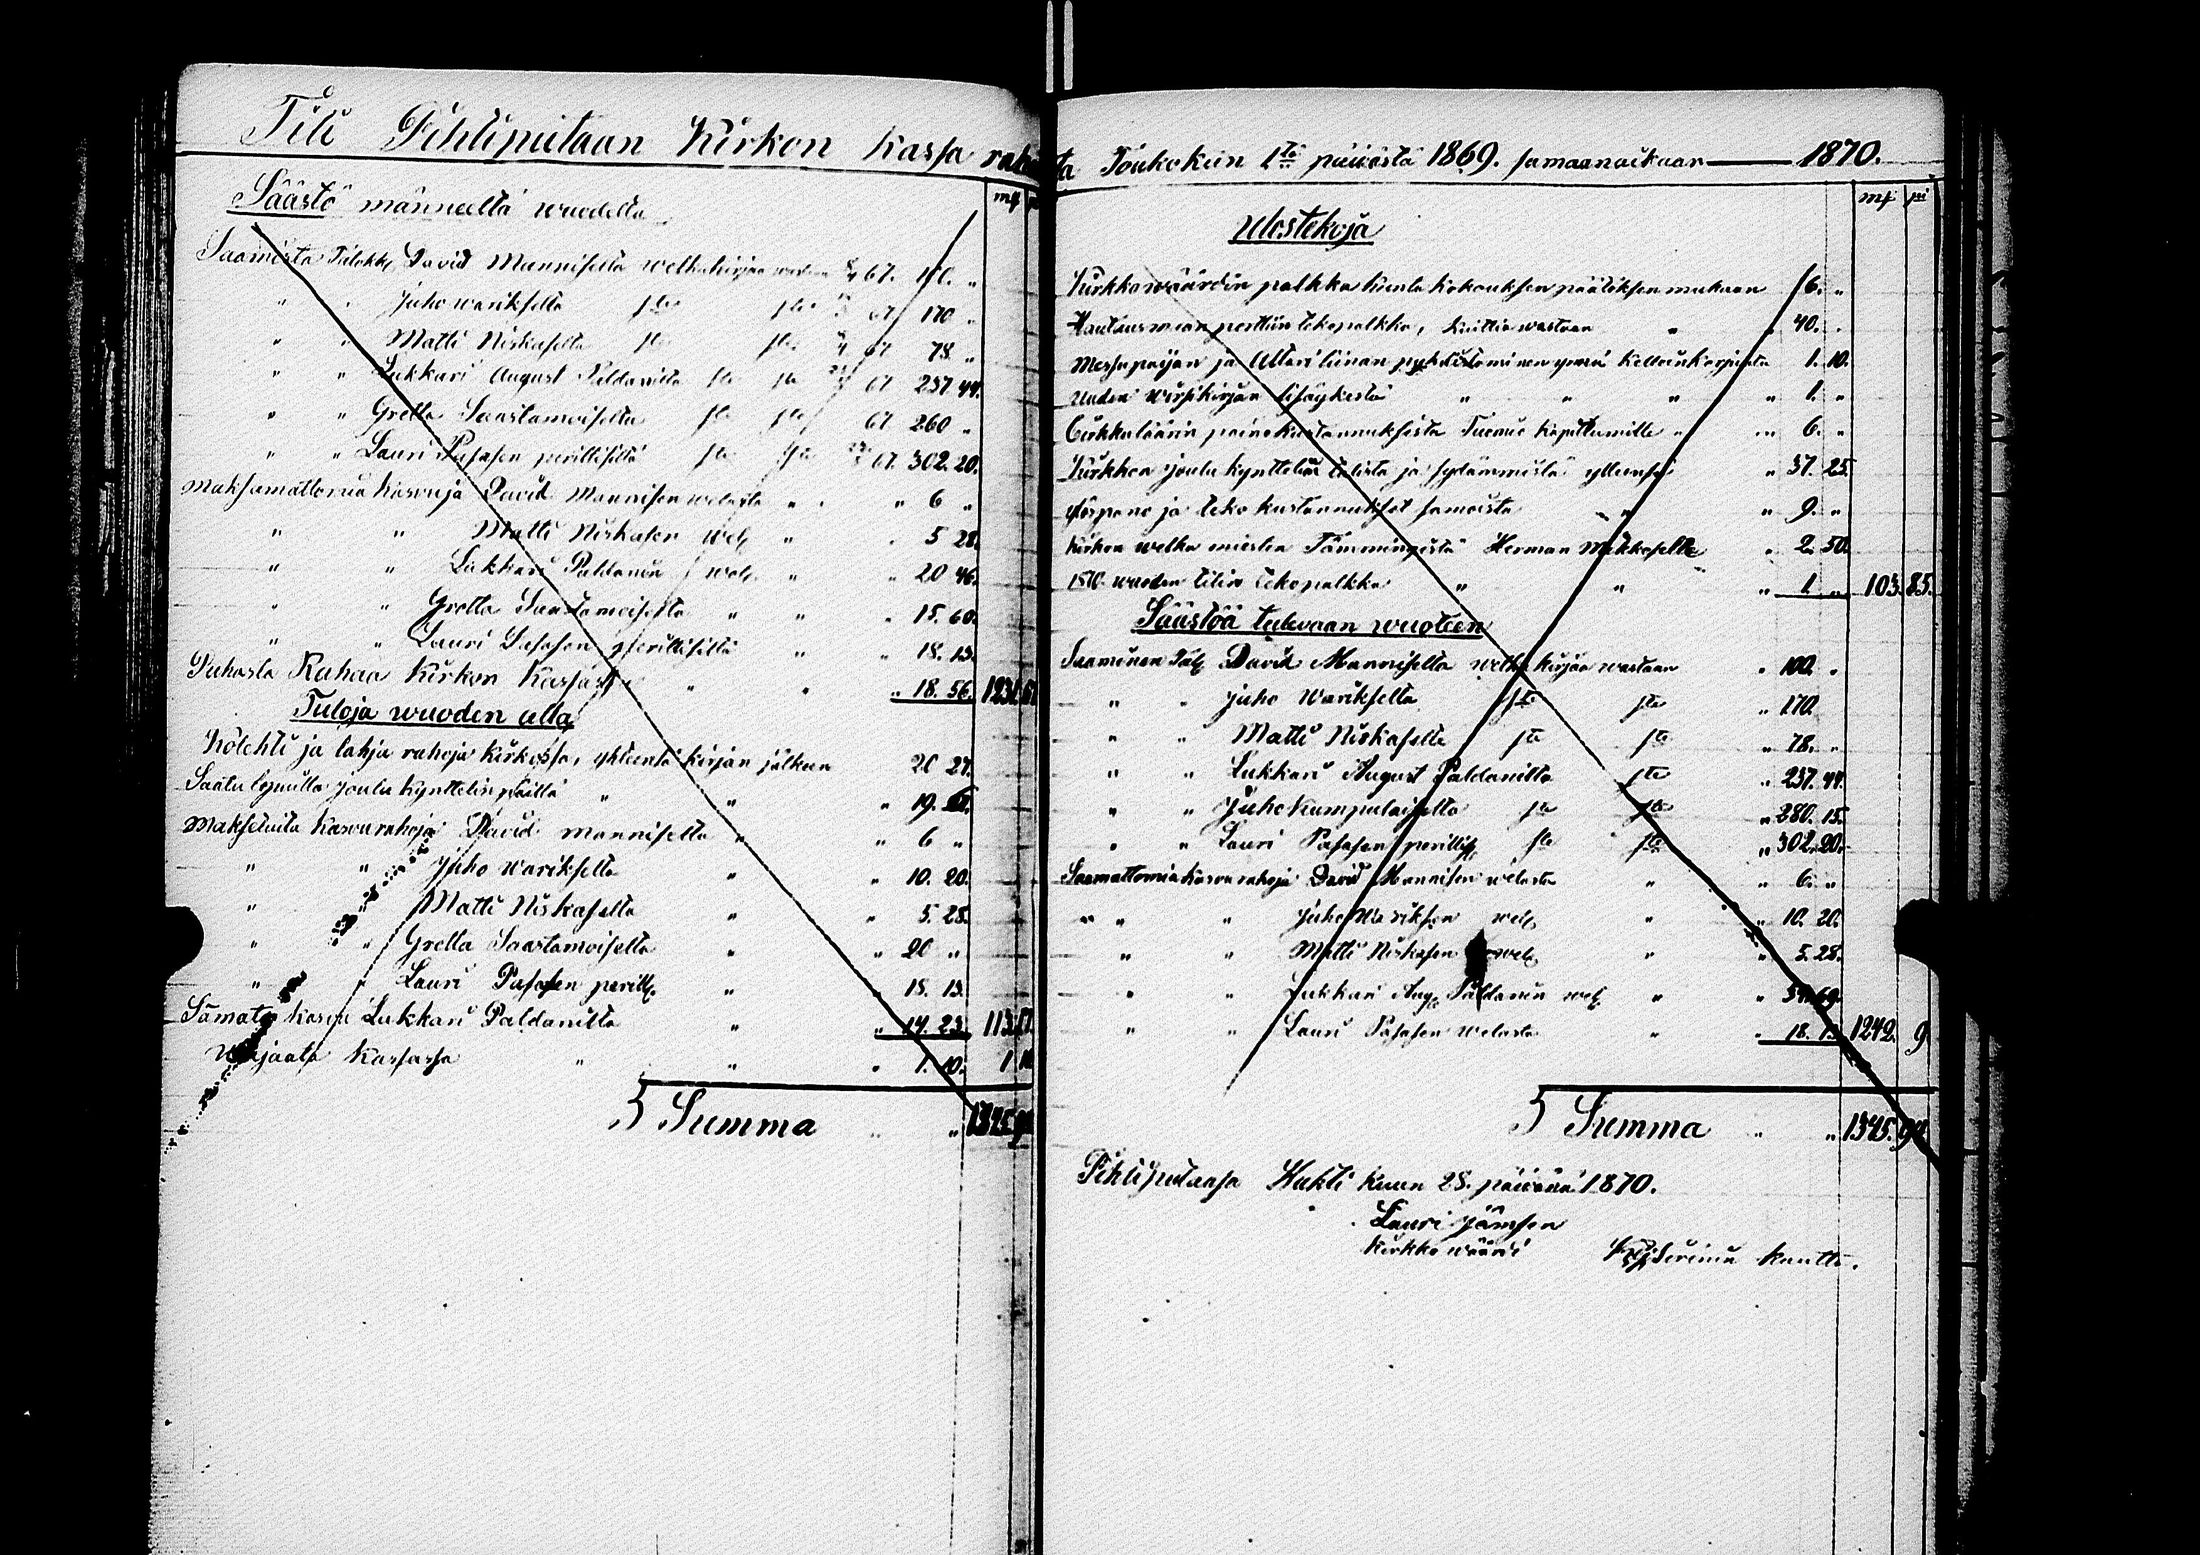 Tili Pihtiputaan Kirkon kassa raha
Säästö männeeltä wuodelta
mk
Saamista Talokk. David Manniselta welkakirjaa wastaan 67. 100. "
" " Juho Warikselta 67 170 "
" " Matti Niskaselta 67 78. "
" " Lukkari August Paldanilta 67 237 44.
" " Gretta Saastamoiselta 67 260 "
" " Lauri Pasasen perillisiltä 67. 302. 20.
Maksamattomia kasvuja David Mannisen welasta " " 6 "
" " Matti Niskasen wel. " " 5 28.
" " Lukkari Paldanin wel. " " 20 46.
" " Gretta Saastamoiselta " " 15. 60.
" " Lauri Pasasen perillisiltä " " 18. 13.
Puhasta Rahaa Kirkon Kassassa " " " 18. 56. 1231.
Tuloja wuoden alla
Kolehti ja lahja rahoja kirkossa, yhteentä kirjan jälkeen 20 27.
Saatu lopuilta joulu kynttelin päiltä " " " 19.
Maksetuita kasvurahoja David Manniselta " " 6 "
" " Juho Warikselta " " 10. 20.
" " Matti Niskaselta " " 5. 28.
" " Gretta Saastamoiselta " " 20 "
" " Lauri Pasasen perill. " 18. 13.
Samate kasvu Lukkari Paldanilta " " 14. 23. 113.
Wajaata kassassa " " " 1. 10. 1 10
Summa " " 1345.
ta Toukokuun 1tä päiwästä 1869. samaanaikaan — 1870.
mk pi
Ulostekoja
Kirkkowäärdin palkka kunta kokouksen päätöksen mukaan 6. "
Hautausmaan porttiin tekopalkka, kuittia wastaan " " 40. "
Messupaijan ja Alttari liinan puhdistaminen ynnä kelloinkorjuusta 1. 10.
Uuden wirsikirjan lisäykestä " " " " 1. "
Cirkuläärin painokustannuksista Tuomio kapitumille " 6. "
Kirkkoa joulu kynttelin talista ja sydämmistä ylleensä " 37. 25.
ja teko kustannukset samoista " " 9. "
Kirkon welka miesten Tämmingistä Herman Makkoselle " 2. 50.
1870 wuoden tilin tekopalkka " " " 1. " 103. 85.
Säästöä tulewaan wuoteen
Saaminen Tal. David Manniselta welka kirjaa wastaan " 100. "
" " Juho Warikselta sta sta " 170.
" " Matti Niskaselta sta sta " 78. "
" " Lukkari August Paldanilta sta " 237. 44.
" " Juho Kumpulaiselta sta sta " 280. 15.
" " Lauri Pasasen perillis. sta sta " 302. 20.
Saamattomia kasvurahoja David Mannisen welasta " " 6. "
" " " Juho Wariksen wel. " " 10. 20.
" " Matti Niskasen wel. " " 5. 28.
" " Lukkari Aug. Paldanin wel. " "
" " Lauri Pasasen welasta " " 18. 13. 1242. 9
Summa " " 1345. 94.
Pihtiputaasa Huhti kuun 28. päiwänä 1870.
Lauri Jämsen
Kirkko wäärdi
kautta.